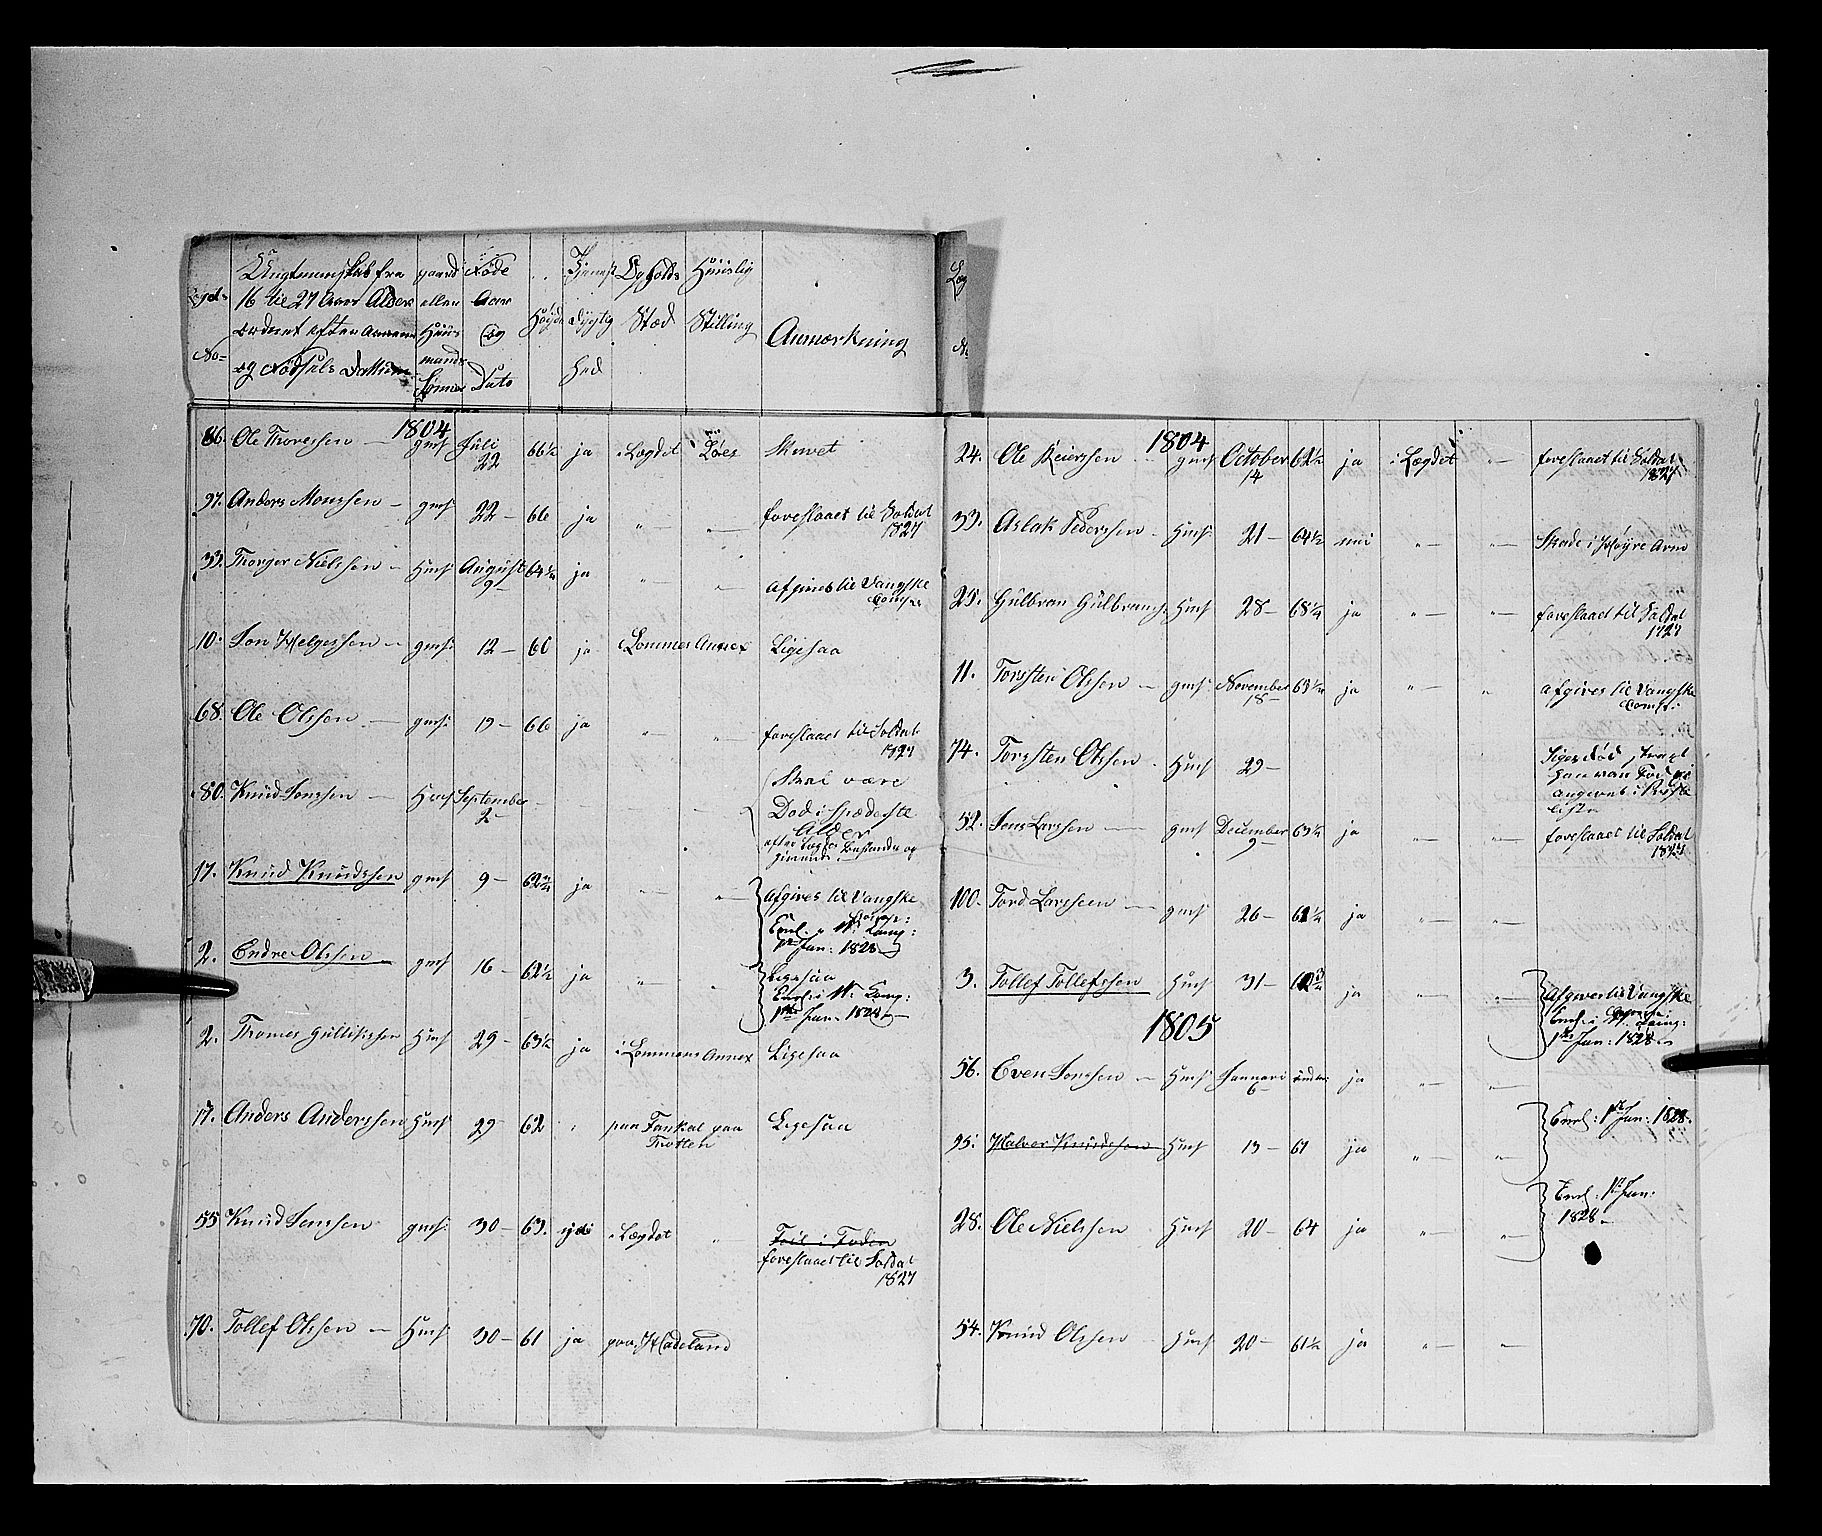 Lægd No= Ungtmandskab fra 16 til 27 Aars Alder ordnet efter Aarene og Fødsels Datum gaard eller Huus mands Sønner Føde Aar og Dato Høyde Tjeneste Dygtighed Opholds Stæd Huuslig Stilling Anmærkning
1804
86. Ole Thoressen — gmS Juli 22 66½ ja i Lægdet Løes Skrevet
97. Anders Monssen — gmS 22 — 66 ja " — " — foreslaaet til Soldat 1827
33. Thorger Nielssen — HmS August 9 — 64¼ ja " — " — afgives til Vangske Comp:
10. Jon Helgessen — gmS: 12 — 66 ja Lommes Annex Ligesaa
68. Ole Olssen — gmS: 19 — 66 ja " — " — foreslaaet til Soldat 1827
80. Knud Jonssen — HmS September 2 — Skal være Død i Spædeste Alder efter
17. Knud Knudssen gmS 9 — 62¾ ja " — " — afgives til Vangske Comp: Enrl. i W. Comp: 1ste Jan: 1828 —
2. Endre Olssen — gmS 16 — 62½ ja " — " Ligesaa Enrl: i W. Comp: 1ste Jan. 1828 —
2. Thomes Gulliksen HmS 29 — 63½ ja i Lommens Annex Ligesaa
17. Anders Anderssen HmS 29 — 62 " paa Fankal paa Thotten Ligesaa
55 Knud Jonssen gmS: 30 — 63. i Lægdet " Feil i Foden foreslaaet til Soldat 1827
70. Tollef Olssen — HmS 30 — 61 ja paa Hadeland
Læg No
1804
24. Ole Reierssen — gmS October 14 62½ ja i Lægdet " — foreslaaet til Soldat 1827
33. Aslak Pederssen — HmS: 21 — 64½ nei " — " — Skade i Høyre Arm
25. Gulbran Gulbrands: HmS 28 — 68¼ ja " — " — foreslaaet til Soldat 1827
11. Torsten Olssen — gmS: November 18 — 63½ ja " — " afgives til Vangske Comp:
74. Torsten Olssen — HmS 29 — Siges død, strax han var Fød angivet i liste
52. Jens Larssen — gmS December 9 — 63¼ ja " — " — foreslaaet til Soldat 1827
100. Tord Larssen — gmS 26 — 62¼ ja " — " —
3. Tollef Tollefssen HmS 31 — 62¾ ja " — " — Afgives til Vangske Comp: Enrl: i W. Comp: 1ste Jan: 1828 —
1805
56. Even Jonssen — HmS Januari 6 — under ja " — " —
95. Halvor Knudssen HmS 13 — 61 ja " — " — Enrl: 1ste Jan: 1828.
28. Ole Nielssen HmS 20 — 64 ja " — " — Enrl: 1ste Jan: 1828 —
54. Knud Olssen — HmS 20 — 61½ ja " — " —